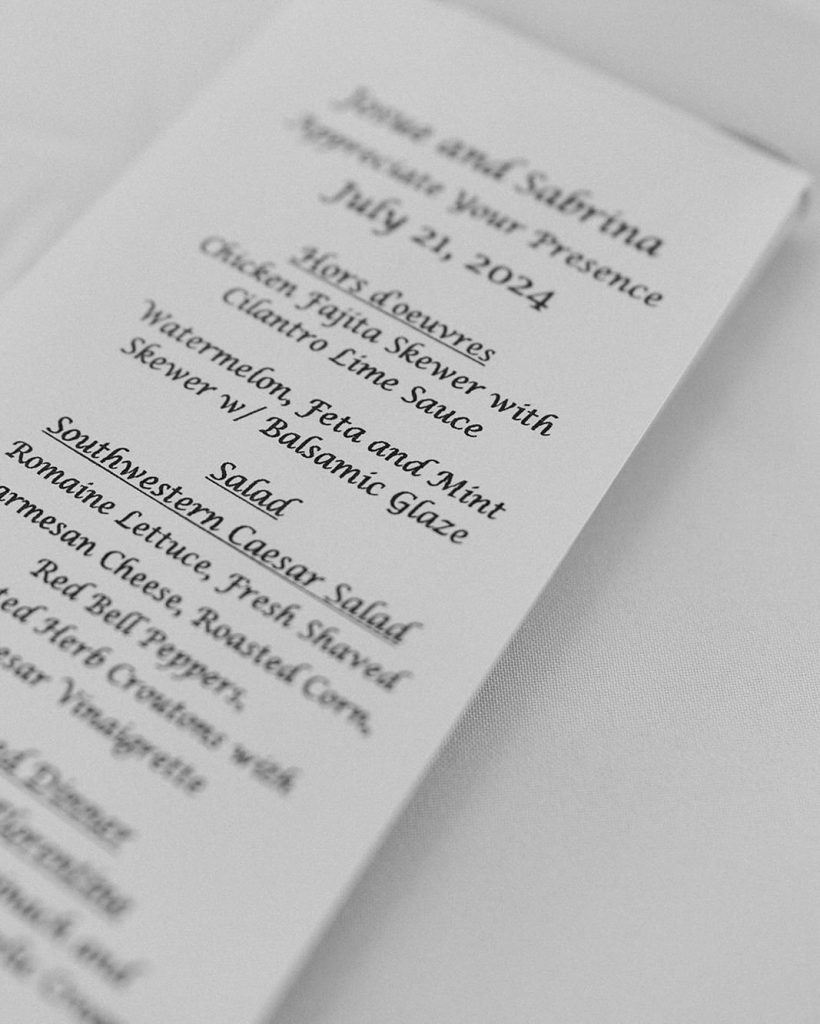 Josue and Sabrina
Appreciate Your Presence
July 21, 2024
Hors d'oeuvres
Chicken Fajita Skewer with
Cilantro Lime Sauce
Watermelon, Feta and Mint
Skewer w/ Balsamic Glaze
Salad
Southwestern Caesar Salad
Romaine Lettuce, Fresh Shaved
armesan Cheese, Roasted Corn,
Red Bell Peppers,
ted Herb Croutons with
esar Vinaigrette
Dinner
and